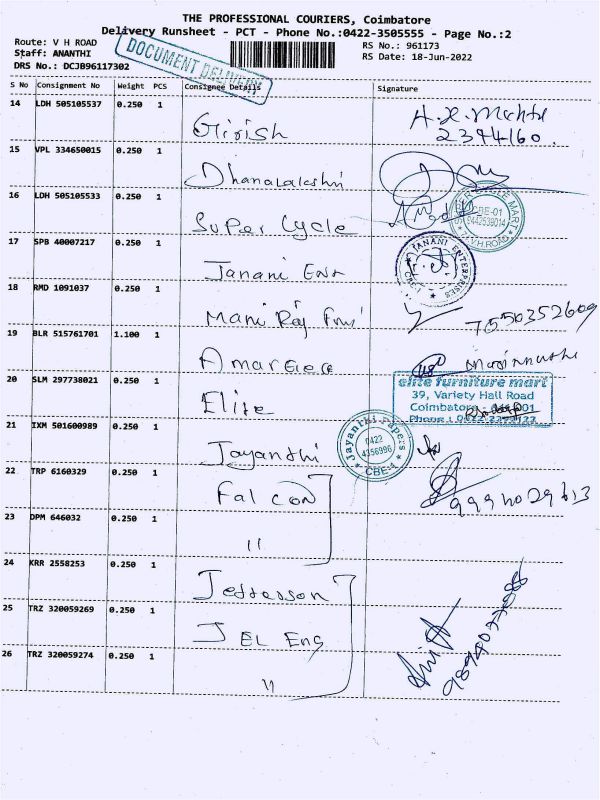 THE PROFESSIONAL COURIERS, Coimbatore
Delivery Runsheet - PCT - Phone No.:0422-3505555 - Page No.:2
Route: V H ROAD
RS No.: 961173
Staff: ANANTHI
RS Date: 18-Jun-2022
DRS No.: DCJB96117302
DOCUMENT DELIVERY
S No Consignment No Weight PCS Consignee Details Signature
14 LDH 505105537 0.250 1
Girish
2394160
15 VPL 334650015 0.250 1
Dhanalakshmi
16 LDH 505105533 0.250 1
Super Cycle
CYCLE MART
CBE-01
V.H.ROAD
17 SPB 40007217 0.250 1
Janani Ent
JANANI ENTERPRISES
CBE-1
18 RMD 1091037 0.250 1
Mani Raj
7550352609
19 BLR 515761701 1.100 1
20 SLM 297738021 0.250 1
Elite
elite furniture mart
39, Variety Hall Road
Coimbatore
21 IXM 501600989 0.250 1
Jayanthi
Jayanthi Papers
0422
4356996
CBE-1
22 TRP 6160329 0.250 1
Falcon
9994029613
23 DPM 646032 0.250 1
"
24 KRR 2558253 0.250 1
Jefferson
25 TRZ 320059269 0.250 1
J EL Eng
26 TRZ 320059274 0.250 1
"